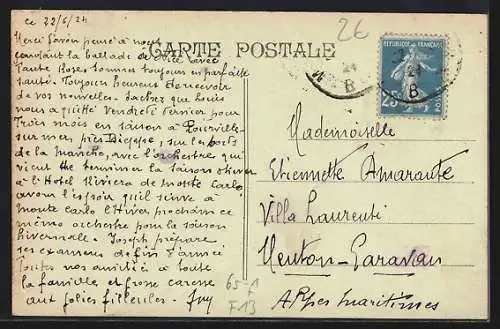 ce 22/6/24
Merci d'avoir pensé à nous
pendant la ballade de Nice avec
Tante Rose. Sommes toujours en parfaite
santé. Toujours heureux de recevoir
de vos nouvelles. Sachez que Louis
nous a quitté Vendredi dernier pour
Trois mois en saison à Pourville-
sur-mer, près Dieppe, sur les bords
de la manche, avec l'orchestre qui
vient de terminer la saison d'hiver
à l'Hotel Riviera de Monte Carlo
avons l'espoir qu'il suive à
monte carlo l'Hiver prochain ce
même orchestre pour la saison
hivernale. Joseph prépare
ses examens de fin d'année
Toutes nos amitiés à toute
la famille et grosse caresse
aux jolies filleules.
CARTE POSTALE
2€
REPUBLIQUE FRANÇAISE
25
POSTES
24
B
Mademoiselle
Etiennette Amarante
Villa Laurenti
Menton-Garavan
Alpes maritimes
65-1
F13